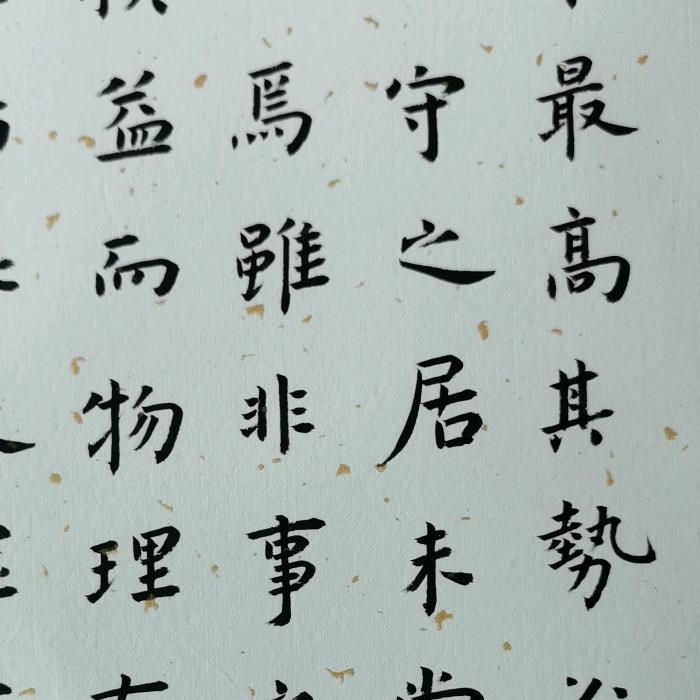 最高其勢
守之居未
焉雖非事
益而物理